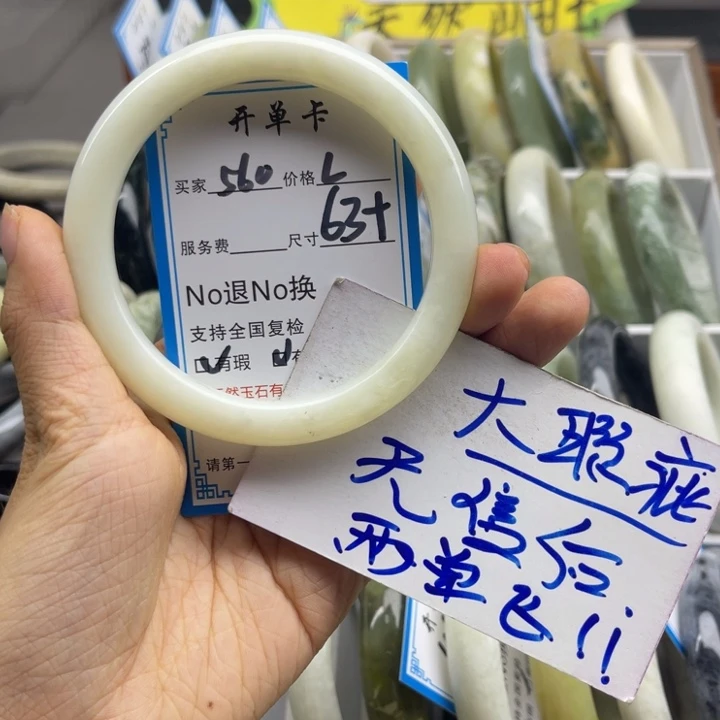 天然
开单卡
买家 560 价格 L
服务费 尺寸 63+
No退No换
支持全国复检
有瑕 有
然玉石有
请第一
大瑕疵
无售后
两单飞!!
开